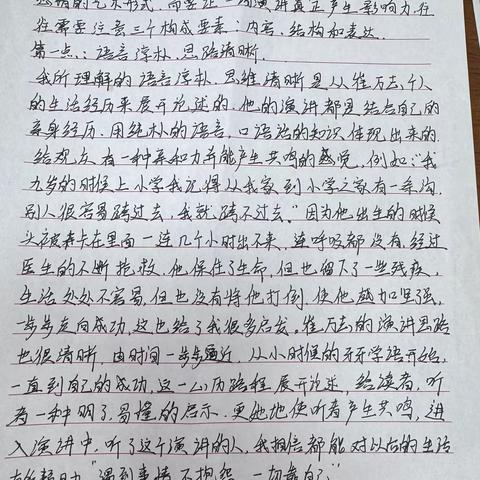 感情的艺术形式，而要让一场演讲真正产生影响力往
往需要注意三个构成要素：内容，结构和表达。
第一点：语言淳朴，思路清晰。
我所理解的语言淳朴，思维清晰是从崔万志个人
的生活经历来展开论述的，他的演讲都是结合自己的
亲身经历，用纯朴的语言，口语话的知识体现出来的
给观众有一种亲和力并能产生共鸣的感觉，例如："我
九岁的时候上小学我记得从我家到小学之家有一条沟，
别人很容易跨过去，我就跨不过去。"因为他出生的时候
头被卡在里面一连几个小时出不来，连呼吸都没有，经过
医生的不断抢救，他保住了生命，但也留下了一些残疾，
生活处处不容易，但也没有将他打倒，使他越加坚强，
一步步走向成功，这也给了我很多启发。崔万志的演讲思路
也很清晰，由时间一步步逼近，从小时候的开学语开始，
一直到自己的成功，这一心历路程展开论述，给读者，听
者一种明了，易懂的启示，更她地使听者产生共鸣，进
入演讲中，听了这个演讲的人，我相信都能对以后的生活
有所帮助，"遇到事情不抱怨，一切靠自己"